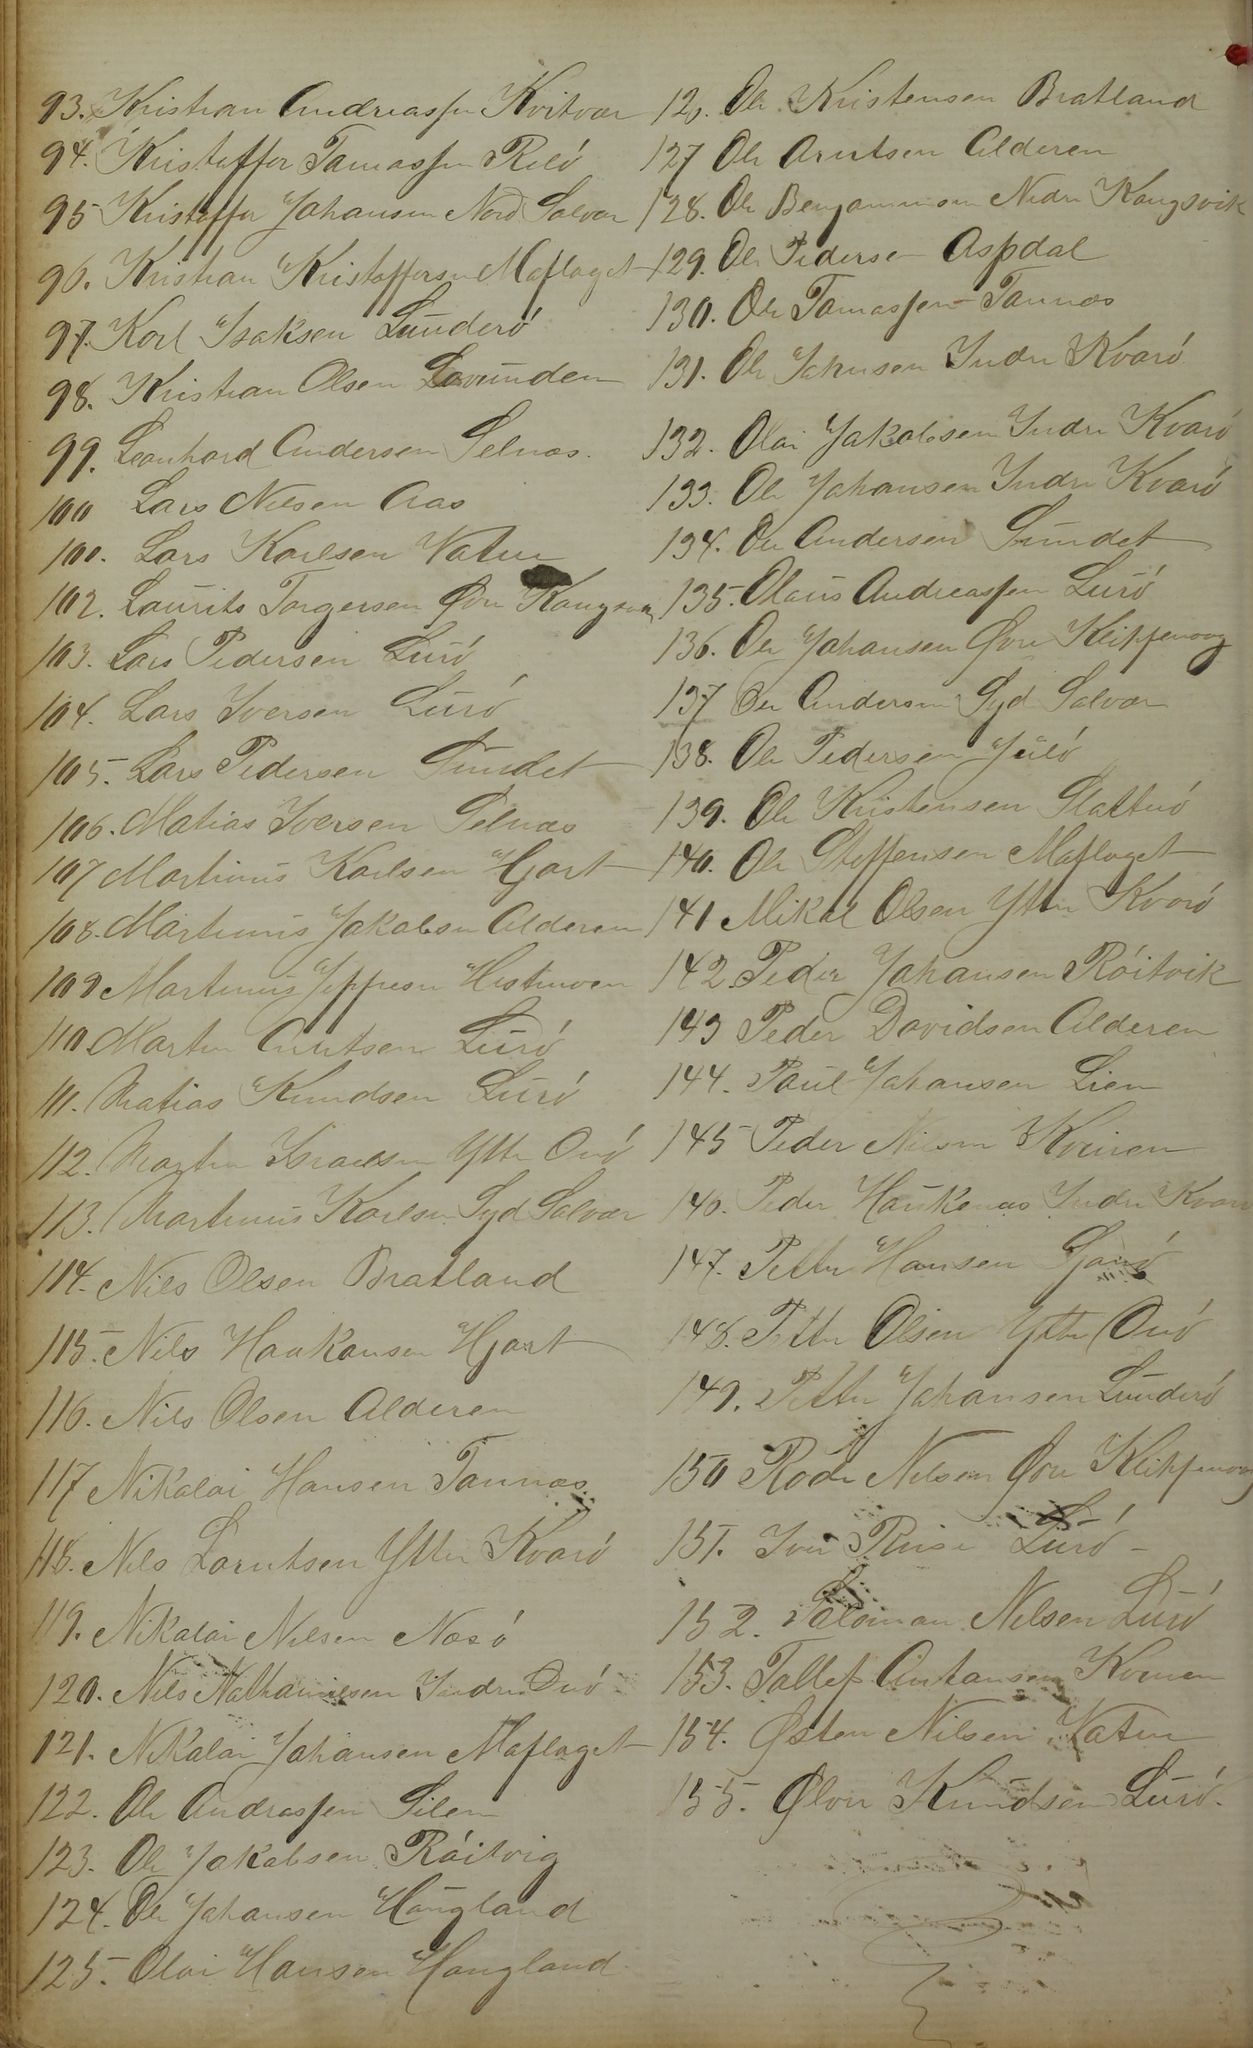 93. Kristian Andreassen Kvitvær
94. Kristoffer Tomassen Reló
95 Kristoffer Johansen Nord Solvær
96. Kristian Kristoffersen Moflaget
97. Karl Isaksen Lunderó
98. Kristian Olsen Lovunden
99. Leonhard Andersen Selnæs.
100 Lars Nilsen Aas
100. Lars Karlsen Vatnn
102. Laurits Torgersen Øvre Kongsvik
103. Lars Pedersen Luró
104. Lars Iversen Luró
105. Lars Pedersen Sundet
106. Matias Iversen Selnæs
107 Martinus Karlsen Hjart
108. Martinus Jakobsen Alderen
109 Martinus Jeppesen Hestmoen
110 Martin Arntsen Luró
111. Matias Knudsen Luró
112. Martin Israelsen Ytre Onó
113. Martinus Karlsen Syd Solvær
114. Nils Olsen Bratland
115. Nils Haakonsen Hjart
116. Nils Olsen Alderen
117 Nikolai Hansen Tonnæs
118. Nils Lorntsen Ytre Kvaró
119. Nikolai Nilsen Nesó
120. Nils Nathanielsen Indre Onó
121. Nikolai Johansen Moflaget
122. Ole Andreassen Silen
123. Ole Jakobsen Róitvig
124. Ole Johansen Haugland
125. Olai Hansen Haugland
126. Ole Kristensen Bratland
127 Ole Arntsen Alderen
128. Ole Benjaminsen Nedre Kongsvik
129. Ole Pedersen Aspdal
130. Ole Tomassen Tonnæs
131. Ole Johnsen Indre Kvaró
132. Olai Jakobsen Indre Kvaró
133. Ole Johansen Indre Kvaró
134. Ole Andersen Sundet
135. Olaus Andreassen Luró
136. Ole Johansen Øvre Klippenvog
137 Ole Andersen Syd Solvær
138. Ole Pedersen Juló
139. Ole Kristensen Slattró
140. Ole Steffensen Moflaget
141 Mikal Olsen Ytre Kvaró
142 Peder Johansen Róitvik
143 Peder Davidsen Alderen
144. Paul Johansen Lien
145 Peder Nilsen Kvinen
146. Peder Haukenæs Indre Kvaró
147. Petter Hansen
148. Petter Olsen Ytre Onó
149. Petter Johansen Lunderó
150 Rode Nilsen Øvre Klippenvog
151. Iver Luró
152. Salomon Nilsen Luró
153. Tollef Antonsen Kvinen
154. Østen Nilsen Vatnn
155. Ølver Knudsen Luró.